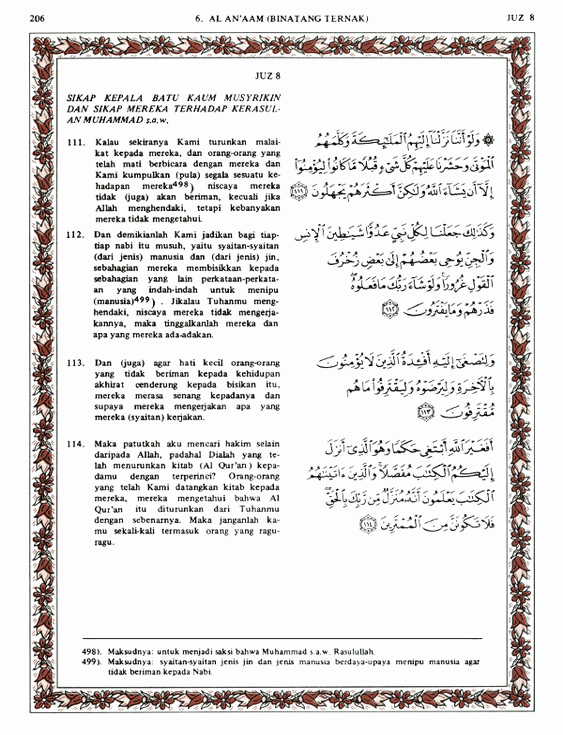 206
6. AL AN'AAM (BINATANG TERNAK)
JUZ 8
JUZ 8
SIKAP KEPALA BATU KAUM MUSYRIKIN
DAN SIKAP MEREKA TERHADAP KERASUL-
AN MUHAMMAD s.a.w.
111. Kalau sekiranya Kami turunkan malai-
kat kepada mereka, dan orang-orang yang
telah mati berbicara dengan mereka dan
Kami kumpulkan (pula) segala sesuatu ke-
hadapan mereka498) niscaya mereka
tidak (juga) akan beriman, kecuali jika
Allah menghendaki, tetapi kebanyakan
mereka tidak mengetahui.
۞ وَلَوْ أَنَّنَا نَزَّلْنَا إِلَيْهِمُ الْمَلَٰٓئِكَةَ وَكَلَّمَهُمُ
الْمَوْتَىٰ وَحَشَرْنَا عَلَيْهِمْ كُلَّ شَىْءٍ قُبُلًا مَّا كَانُوا۟ لِيُؤْمِنُوٓا۟
إِلَّآ أَن يَشَآءَ اللَّهُ وَلَٰكِنَّ أَكْثَرَهُمْ يَجْهَلُونَ ١١١
112. Dan demikianlah Kami jadikan bagi tiap-
tiap nabi itu musuh, yaitu syaitan-syaitan
(dari jenis) manusia dan (dari jenis) jin,
sebahagian mereka membisikkan kepada
sebahagian yang lain perkataan-perkata-
an yang indah-indah untuk menipu
(manusia)499) . Jikalau Tuhanmu meng-
hendaki, niscaya mereka tidak mengerja-
kannya, maka tinggalkanlah mereka dan
apa yang mereka ada-adakan.
وَكَذَٰلِكَ جَعَلْنَا لِكُلِّ نَبِىٍّ عَدُوًّا شَيَٰطِينَ الْإِنسِ
وَالْجِنِّ يُوحِى بَعْضُهُمْ إِلَىٰ بَعْضٍ زُخْرُفَ
الْقَوْلِ غُرُورًا وَلَوْ شَآءَ رَبُّكَ مَا فَعَلُوهُ
فَذَرْهُمْ وَمَا يَفْتَرُونَ ١١٢
113. Dan (juga) agar hati kecil orang-orang
yang tidak beriman kepada kehidupan
akhirat cenderung kepada bisikan itu,
mereka merasa senang kepadanya dan
supaya mereka mengerjakan apa yang
mereka (syaitan) kerjakan.
وَلِتَصْغَىٰٓ إِلَيْهِ أَفْـِٔدَةُ الَّذِينَ لَا يُؤْمِنُونَ
بِالْـَٔاخِرَةِ وَلِيَرْضَوْهُ وَلِيَقْتَرِفُوا۟ مَا هُم
مُّقْتَرِفُونَ ١١٣
114. Maka patutkah aku mencari hakim selain
daripada Allah, padahal Dialah yang te-
lah menurunkan kitab (Al Qur'an) kepa-
damu dengan terperinci? Orang-orang
yang telah Kami datangkan kitab kepada
mereka, mereka mengetahui bahwa Al
Qur'an itu diturunkan dari Tuhanmu
dengan sebenarnya. Maka janganlah ka-
mu sekali-kali termasuk orang yang ragu-
ragu.
أَفَغَيْرَ اللَّهِ أَبْتَغِى حَكَمًا وَهُوَ الَّذِىٓ أَنزَلَ
إِلَيْكُمُ الْكِتَٰبَ مُفَصَّلًا وَالَّذِينَ ءَاتَيْنَٰهُمُ
الْكِتَٰبَ يَعْلَمُونَ أَنَّهُۥ مُنَزَّلٌ مِّن رَّبِّكَ بِالْحَقِّ
فَلَا تَكُونَنَّ مِنَ الْمُمْتَرِينَ ١١٤
498). Maksudnya: untuk menjadi saksi bahwa Muhammad s.a.w. Rasulullah.
499). Maksudnya: syaitan-syaitan jenis jin dan jenis manusia berdaya-upaya menipu manusia agar
tidak beriman kepada Nabi.